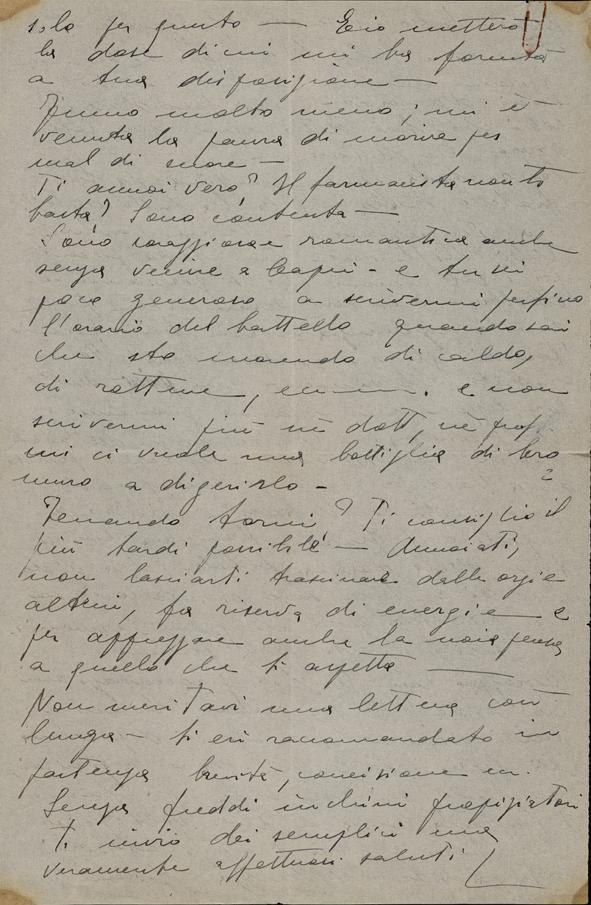 solo per questo — E io metterò
la dose di cui mi ha fornita
a tua disposizione —
Fumo molto meno; mi è
venuta la paura di morire per
mal di cuore —
Ti annoi vero? Il farmacista non ti
basta? Sono contenta —
Sono romantica anche
senza venire a Capri - e tu sei
poco generoso a scrivermi perfino
l'orario del battello quando sai
che sto morendo di caldo,
di e non
scrivermi più nè dott, nè prof.
mi ci vuole una bottiglia di bro
muro a digerirlo -
torni? Ti consiglio il
più tardi possibile — Annoiati,
non lasciarti trascinare dalle orgie
altrui, fa riserva di energie e
per apprezzare anche la noia pensa
a quello che ti aspetta —
Non meritavi una lettera così
lunga — ti eri raccomandato in
partenza brevità, concisione
Senza freddi inchini propiziatori
ti invio dei semplici ma
veramente affettuosi saluti